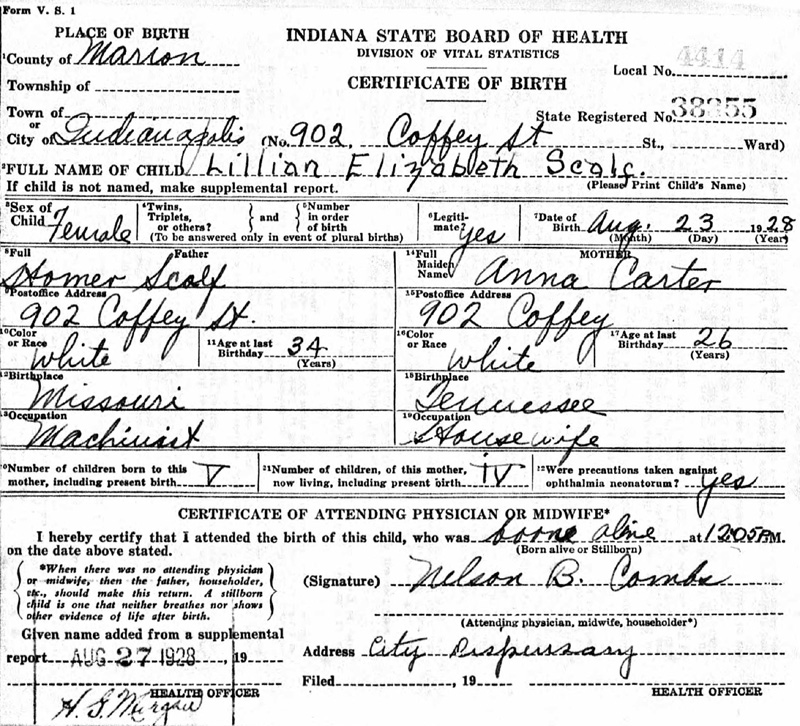 Form V. S. 1
PLACE OF BIRTH
INDIANA STATE BOARD OF HEALTH
DIVISION OF VITAL STATISTICS
1County of Marion
Local No. 4414
Township of
CERTIFICATE OF BIRTH
Town of
or
State Registered No. 38355
City of Indianapolis (No. 902 Coffey St St., Ward)
2FULL NAME OF CHILD Lillian Elizabeth Scalf.
If child is not named, make supplemental report. (Please Print Child's Name)
3Sex of Child Female
4Twins, Triplets, or others? and 5Number in order of birth
(To be answered only in event of plural births)
6Legitimate? yes
7Date of Birth Aug. 23 1928
(Month) (Day) (Year)
8Full Father
Homer Scalf
14Full Maiden Name MOTHER
Anna Carter
9Postoffice Address
902 Coffey St.
15Postoffice Address
902 Coffey
10Color or Race White
11Age at last Birthday 34
(Years)
16Color or Race White
17Age at last Birthday 26
(Years)
12Birthplace
Missouri
18Birthplace
Tennessee
13Occupation
Machinist
19Occupation
Housewife
20Number of children born to this mother, including present birth V
21Number of children, of this mother, now living, including present birth IV
22Were precautions taken against ophthalmia neonatorum? yes
CERTIFICATE OF ATTENDING PHYSICIAN OR MIDWIFE*
I hereby certify that I attended the birth of this child, who was borne alive at 12:05 P.M.
on the date above stated. (Born alive or Stillborn)
*When there was no attending physician
or midwife, then the father, householder,
etc., should make this return. A stillborn
child is one that neither breathes nor shows
other evidence of life after birth.
(Signature) Nelson B. Combs
(Attending physician, midwife, householder*)
Given name added from a supplemental
report AUG 27 1928, 19
Address City Dispensary
Filed , 19
HEALTH OFFICER
HEALTH OFFICER